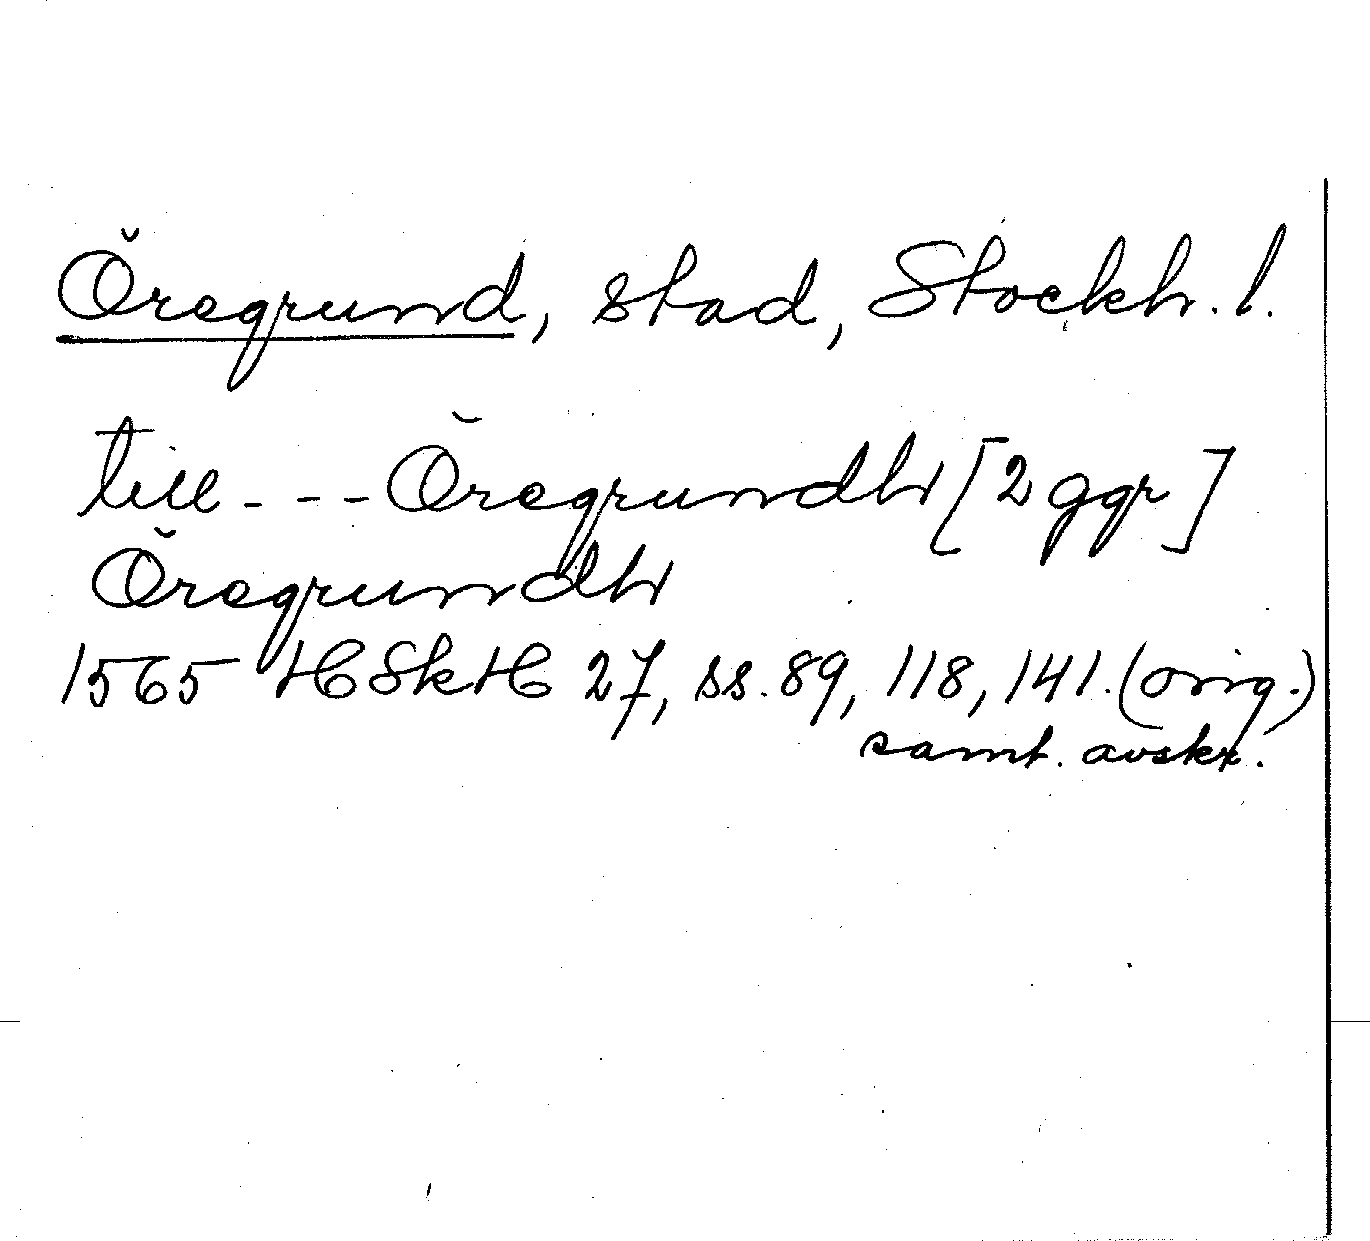 Öregrund, stad, Stockh. l.
till --- Öregrundh [2 ggr]
Öregrundh
1565 HSkH 27, ss. 89, 118, 141. (orig.)
samt. avskr.